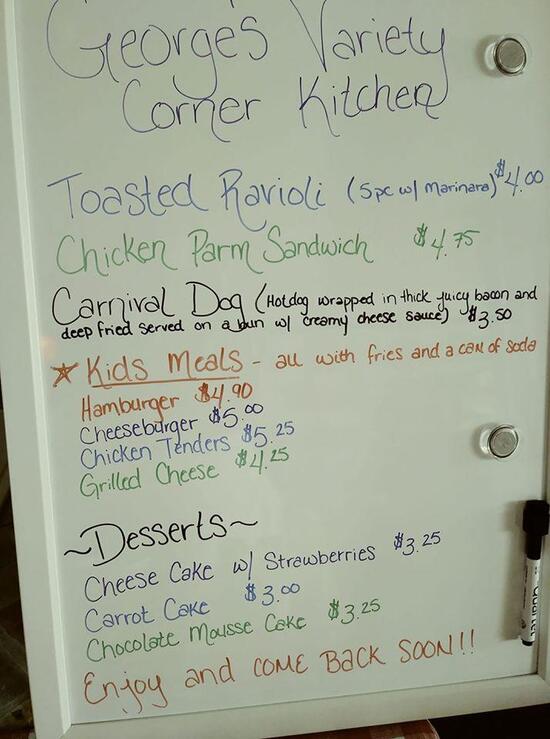 George's Variety
Corner Kitchen
Toasted Ravioli (5pc w/ marinara) $4.00
Chicken Parm Sandwich $4.75
Carnival Dog (Hotdog wrapped in thick juicy bacon and
deep fried served on a bun w/ creamy cheese sauce) $3.50
Kids Meals - all with fries and a can of soda
Hamburger $4.90
Cheeseburger $5.00
Chicken Tenders $5.25
Grilled Cheese $4.25
~Desserts~
Cheese Cake w/ Strawberries $3.25
Carrot Cake $3.00
Chocolate Mousse Cake $3.25
Enjoy and COME BACK SOON!!